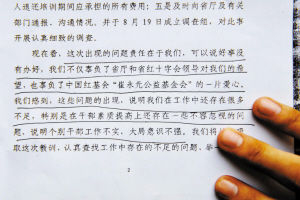 人退还培训期间应承担的所有费用；五是及时向省厅及有关
部门通报、沟通情况，并于8月19日成立调查组，对此事
开展认真细致的调查。
现在看，这次出现的问题责任在于我们，可以说好事没
有办好，我们不仅辜负了省厅和省红十字会领导对我们的希
望，也辜负了中国红基会“崔永元公益基金会”的一片爱心。
我们感到，这些问题的出现，说明我们在工作中还存在很多
不足，特别是在干部素质提高上还存在一些不容忽视的问
题，说明个别干部工作不实，大局意识不强。我们将
取这次教训，认真查找工作中存在的不足的问题，举一
2